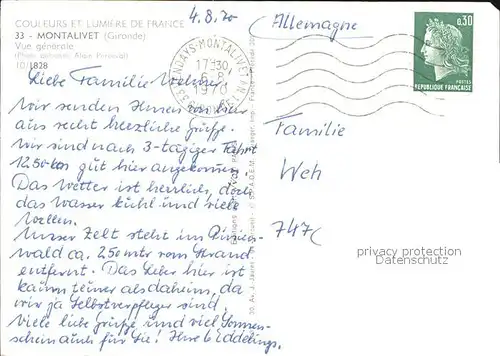 COULEURS ET LUMIÈRE DE FRANCE
33 - MONTALIVET (Gironde)
Vue générale
(Photo aérienne Alain Perceval)
ID/1828
4.8.70
Allemagne
VENDAYS-MONTALIVET
17H30
6-8
1970
0,30
POSTES
REPUBLIQUE FRANÇAISE
Liebe Familie
Wir senden Ihnen von hier
aus recht herzliche Grüße.
Wir sind nach 3-tägiger Fahrt
1250 km gut hier angekommen.
Das Wetter ist herrlich, doch
das Wasser kühl und viele
Wellen.
Unser Zelt steht im Pinien-
wald ca. 250 mtr vom Strand
entfernt. Das Leben hier ist
kaum teurer als daheim, da
wir ja Selbstverpfleger sind.
Viele liebe Grüße und viel Sonnen-
schein auch für Sie! Ihre 6 Eddelings.
Familie
Weh
747
privacy protection
Datenschutz